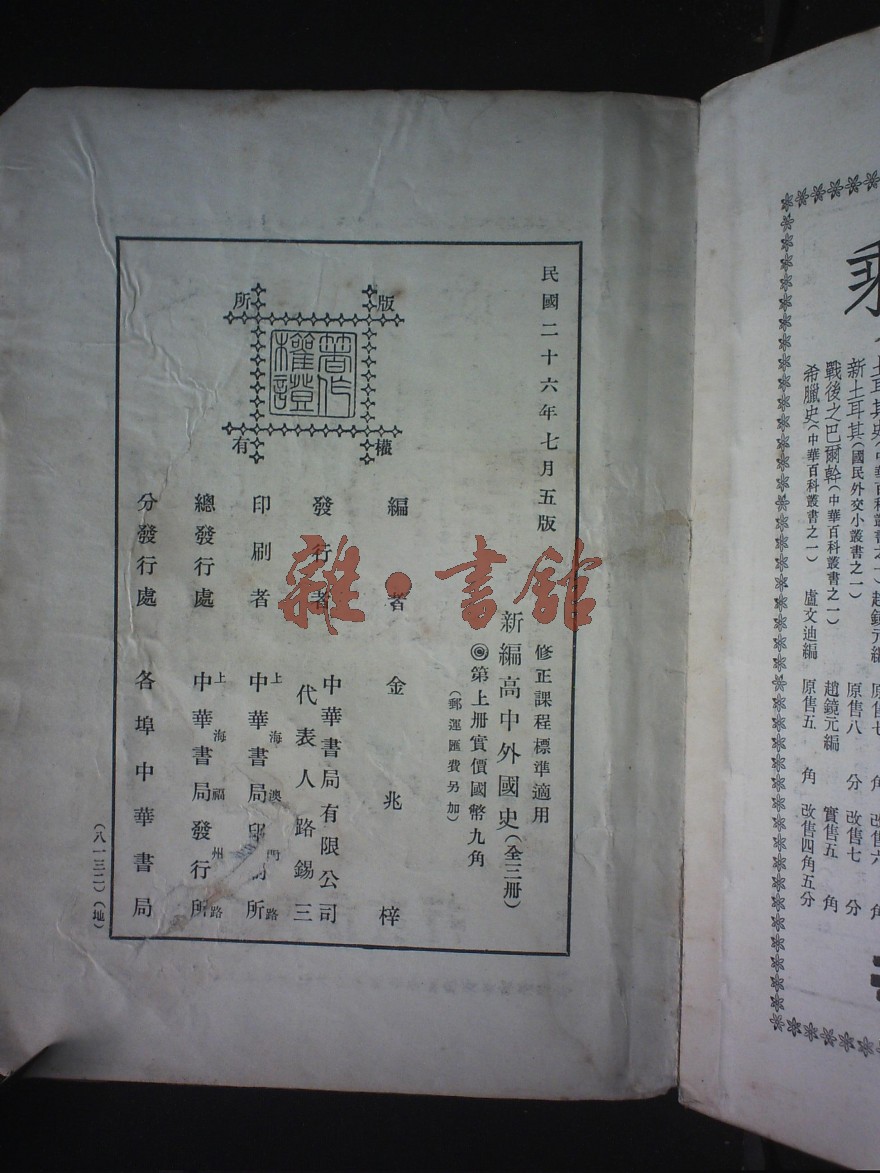 民國二十六年七月五版
修正課程標準適用
新編高中外國史（全三冊）
◎第上册實價國幣九角
（郵運匯費另加）
版權所有
著作權證
編者 金兆梓
發行者 中華書局有限公司
代表人路錫三
印刷者 上海澳門路
中華書局印刷所
總發行處 上海福州路
中華書局發行所
分發行處 各埠中華書局
（八一三二）（地）
雜·書館
新土耳其（國民外交小叢書之一） 原售八分 改售七分
戰後之巴爾幹（中華百科叢書之一） 趙鏡元編 實售五角
希臘史（中華百科叢書之一） 盧文迪編 原售五角 改售四角五分